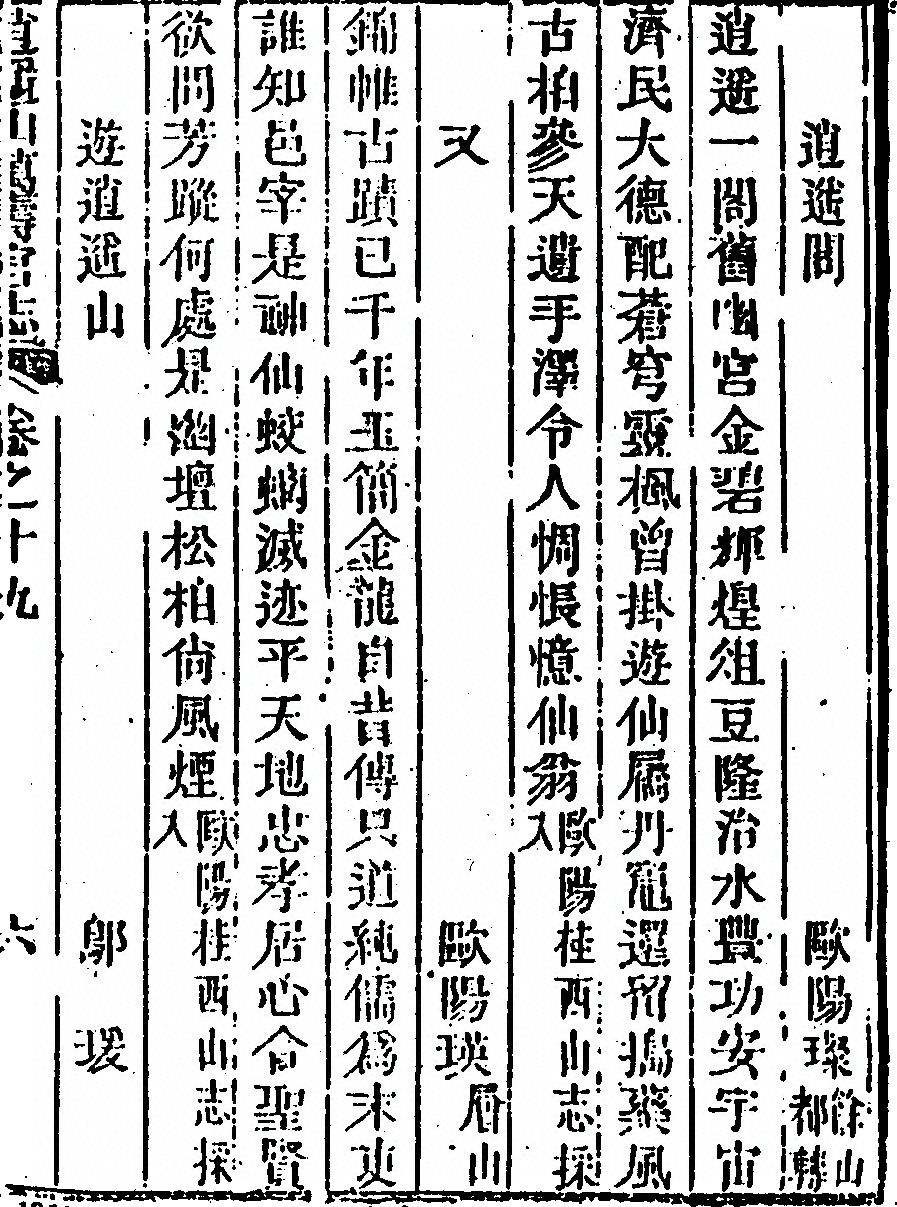 逍遙閣　歐陽璨餘山都轉
逍遙一閣舊幽宮金碧輝煌俎豆隆治水豐功安宇宙
濟民大德配蒼穹靈楓曾掛遊仙屩丹竈還留搗藥風
古柏參天遺手澤令人惆悵憶仙翁歐陽桂西山志採入
又　歐陽瑛眉山
錦帷古蹟已千年玉簡金龍自昔傳只道純儒為末吏
誰知邑宰是神仙蛟螭滅迹平天地忠孝居心合聖賢
欲問芳蹤何處是幽壇松柏尙風煙歐陽桂西山志採入
遊逍遙山　鄔瑗
逍遙山萬壽宮志　卷之十九　六